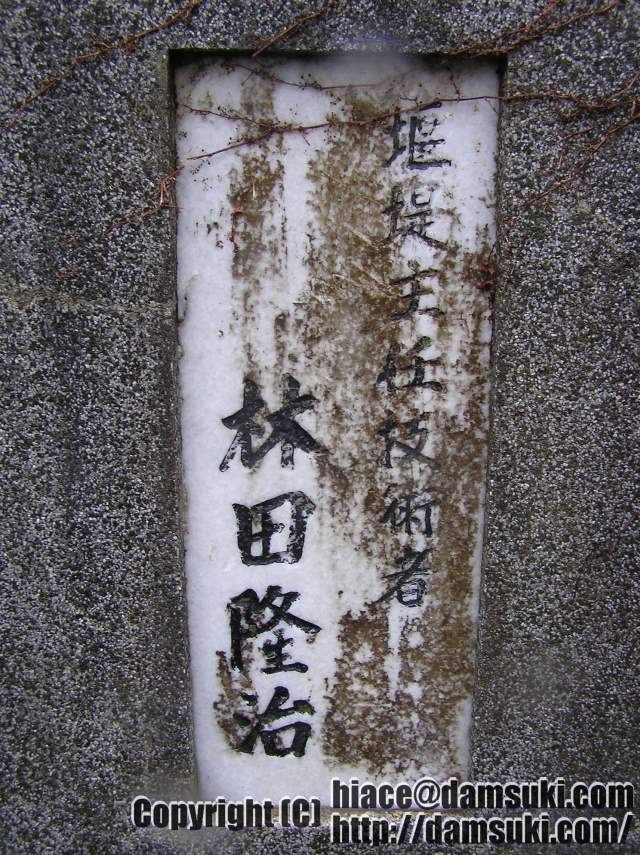 堰堤主任技術者
林田隆治
Copyright (C) hiace@damsuki.com
http://damsuki.com/